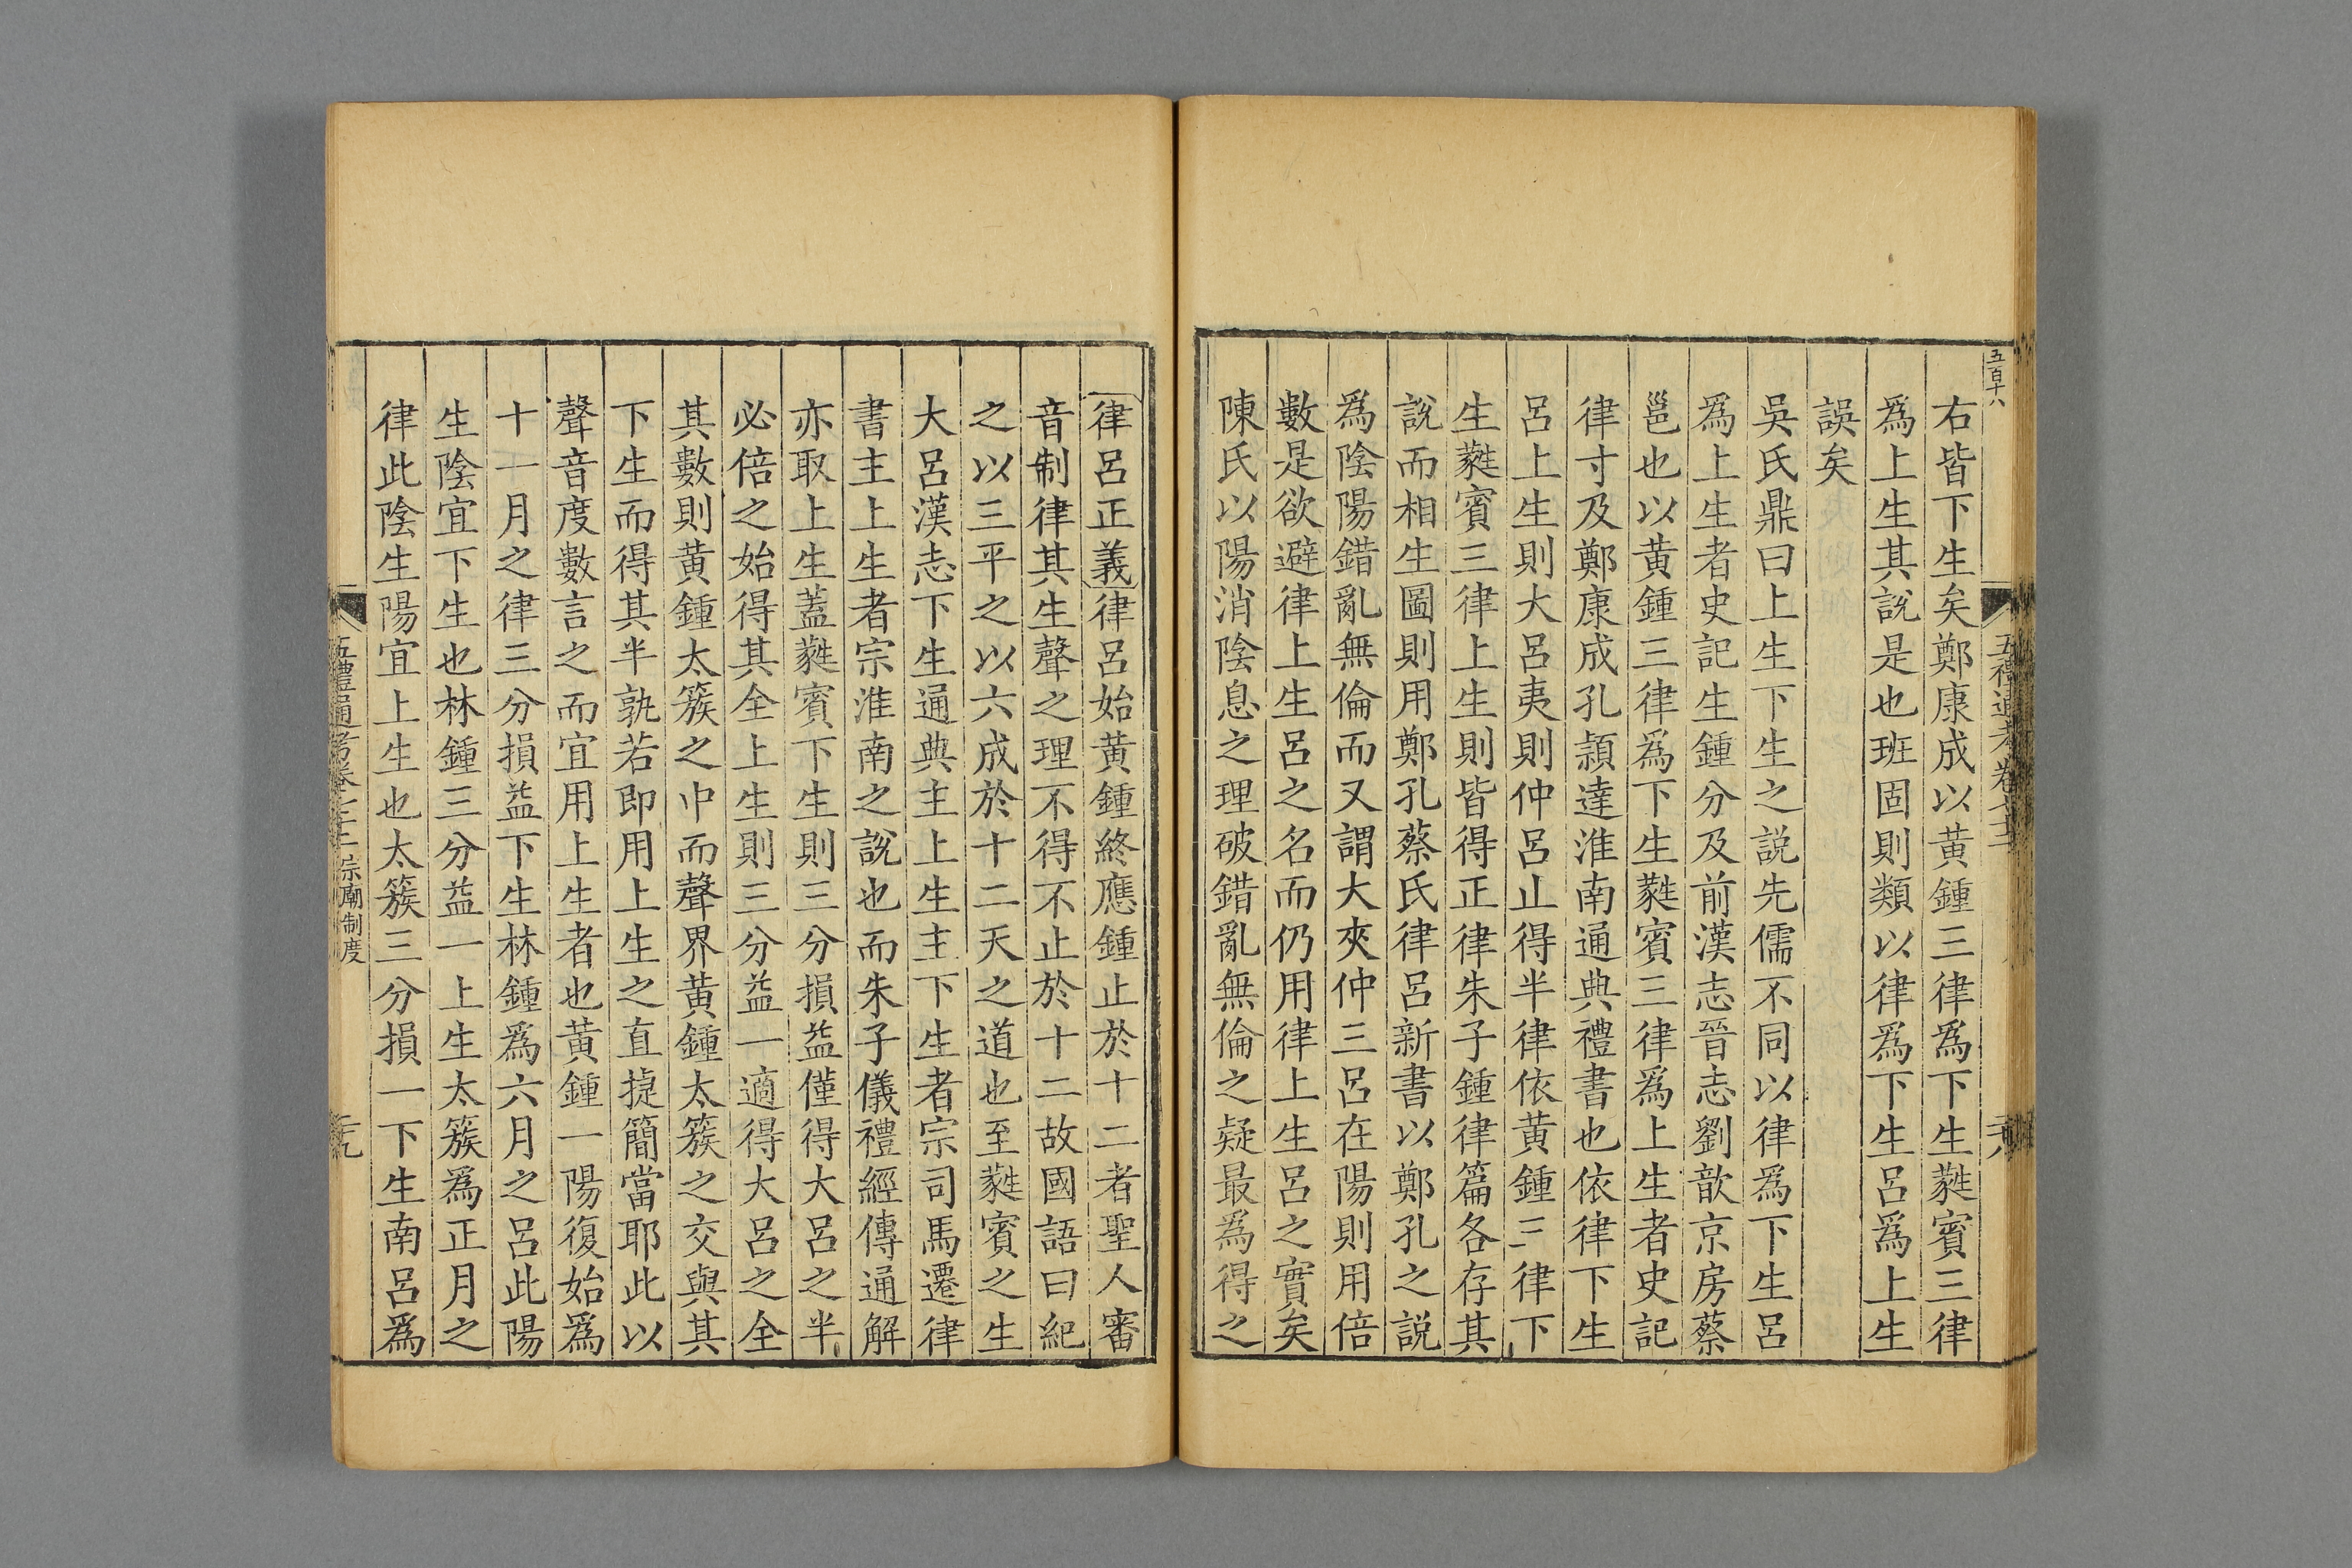 五百十八
右皆下生矣鄭康成以黄鍾三律為下生蕤賓三律
為上生其說是也班固則類以律為下生呂為上生
誤矣
吳氏鼎曰上生下生之説先儒不同以律為下生呂
為上生者史記生鍾分及前漢志晉志劉歆京房蔡
邕也以黄鍾三律為下生蕤賓三律為上生者史記
律寸及鄭康成孔頴達淮南通典禮書也依律下生
呂上生則大呂夷則仲呂止得半律依黄鍾三律下
生蕤賓三律上生則皆得正律朱子鍾律篇各存其
說而相生圖則用鄭孔蔡氏律呂新書以鄭孔之説
為陰陽錯亂無倫而又謂大夾仲三呂在陽則用倍
數是欲避律上生呂之名而仍用律上生呂之實矣
陳氏以陽消陰息之理破錯亂無倫之疑最為得之
律呂正義律呂始黄鍾終應鍾止於十二者聖人審
音制律其生聲之理不得不止於十二故國語曰紀
之以三平之以六成於十二天之道也至蕤賓之生
大呂漢志下生通典主上生主下生者宗司馬遷律
書主上生者宗淮南之說也而朱子儀禮經傳通解
亦取上生蓋蕤賓下生則三分損益僅得大呂之半
必倍之始得其全上生則三分益一適得大呂之全
其數則黄鍾太簇之中而聲界黄鍾太簇之交與其
下生而得其半孰若即用上生之直㨗簡當耶此以
聲音度數言之而宜用上生者也黄鍾一陽復始為
十一月之律三分損益下生林鍾為六月之呂此陽
生陰宜下生也林鍾三分益一上生太簇為正月之
律此陰生陽宜上生也太簇三分損一下生南呂為
五禮通考卷七十二 宗廟制度